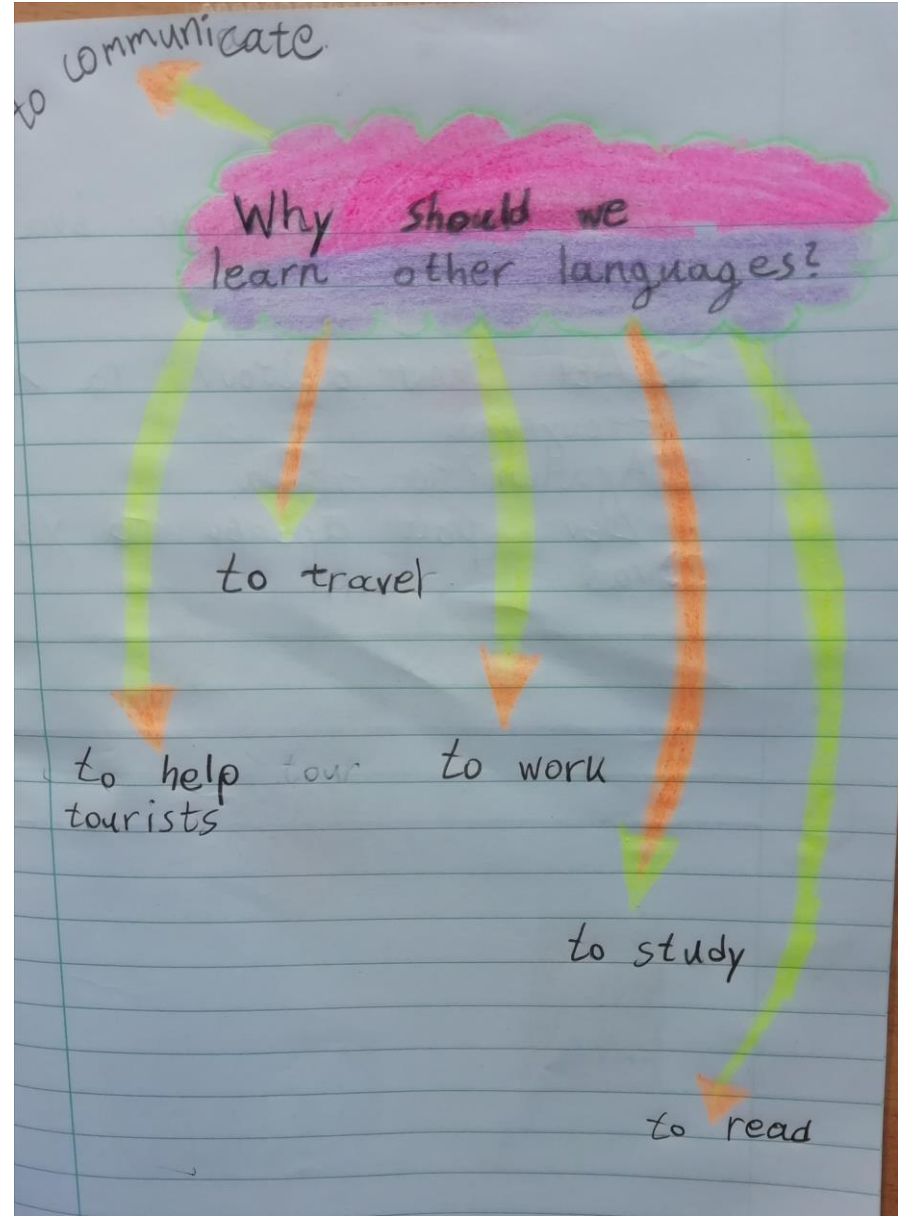 to communicate.
Why should we
learn other languages?
to travel
to help tour
tourists
to work
to study
to read